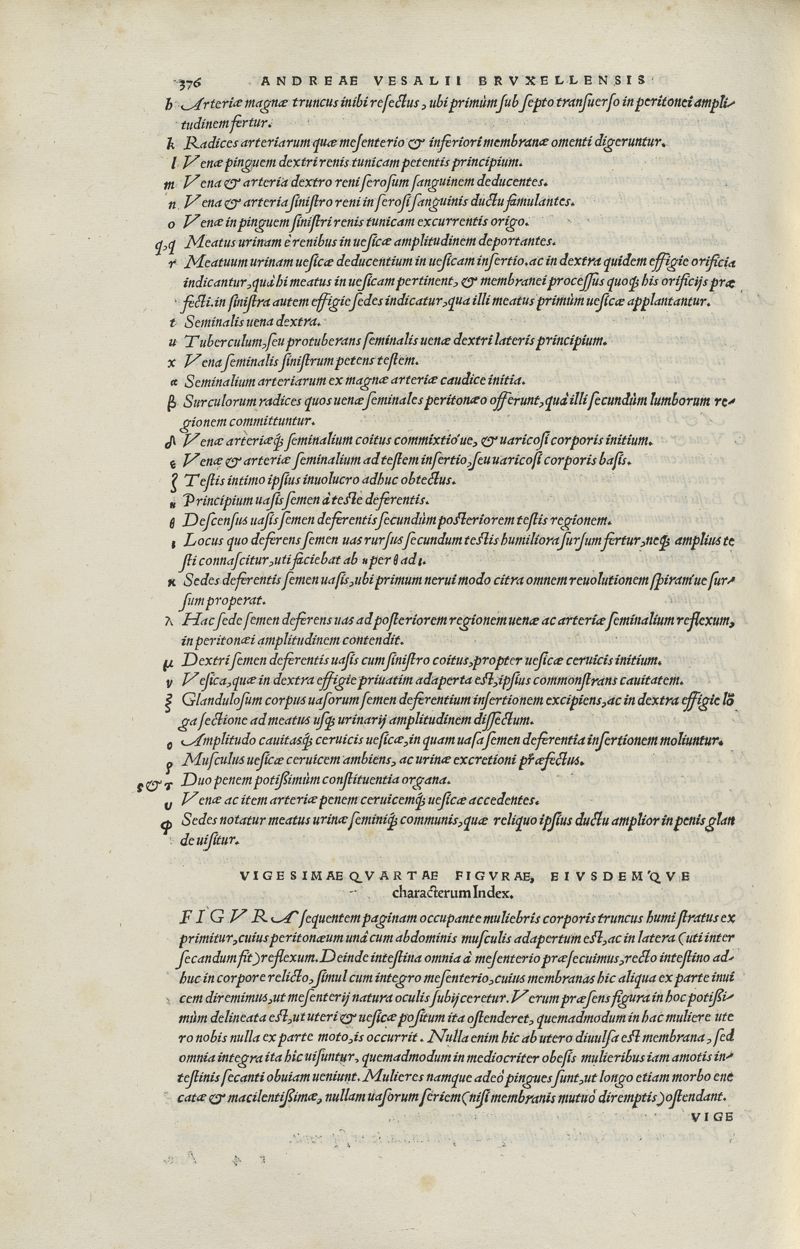 376 ANDREAE VESALII BRVXELLENSIS
h Arteriæ magnæ truncus inibi reſectus, ubi primùm ſub ſepto tranſuerſo in peritonei ampli-
tudinem fertur.
k Radices arteriarum quæ meſenterio & inferiori membranæ omenti digeruntur.
l Venæ pinguem dextri renis tunicam petentis principium.
m Vena & arteria dextro reni ſeroſum ſanguinem deducentes.
n Vena & arteria ſiniſtro reni in ſeroſi ſanguinis ductu famulantes.
o Venæ in pinguem ſiniſtri renis tunicam excurrentis origo.
q,q Meatus urinam è renibus in ueſicæ amplitudinem deportantes.
r Meatuum urinam ueſicæ deducentium in ueſicam inſertio. ac in dextra quidem effigie orificia
indicantur, quà hi meatus in ueſicam pertinent, & membranei proceſſus quoq; his orificijs præ
fecti. in ſiniſtra autem effigie ſedes indicatur, qua illi meatus primùm ueſicæ applantantur.
t Seminalis uena dextra.
u Tuberculum, ſeu protuberans ſeminalis uenæ dextri lateris principium.
x Vena ſeminalis ſiniſtrum petens teſtem.
α Seminalium arteriarum ex magnæ arteriæ caudice initia.
β Surculorum radices quos uenæ ſeminales peritonæo offerunt, quà illi ſecundùm lumborum re-
gionem committuntur.
δ Venæ arteriæq́; ſeminalium coitus commixtio'ue, & uaricoſi corporis initium.
ε Venæ & arteriæ ſeminalium ad teſtem inſertio, ſeu uaricoſi corporis baſis.
ζ Teſtis intimo ipſius inuolucro adhuc obtectus.
η Principium uaſis ſemen à teſte deferentis.
θ Deſcenſus uaſis ſemen deferentis ſecundùm poſteriorem teſtis regionem.
ι Locus quo deferens ſemen uas rurſus ſecundum teſtis humiliora ſurſum fertur, neq́; amplius te
ſti connaſcitur, uti faciebat ab η per θ ad ι.
κ Sedes deferentis ſemen uaſis, ubi primum nerui modo citra omnem reuolutionem ſpiram'ue ſur-
ſum properat.
λ Hac ſede ſemen deferens uas ad poſteriorem regionem uenæ ac arteriæ ſeminalium reflexum,
in peritonæi amplitudinem contendit.
μ Dextri ſemen deferentis uaſis cum ſiniſtro coitus, propter ueſicæ ceruicis initium.
ν Veſica, quæ in dextra effigie priuatim adaperta eſt, ipſius commonſtrans cauitatem.
ξ Glanduloſum corpus uaſorum ſemen deferentium inſertionem excipiens, ac in dextra effigie lõ
ga ſectione ad meatus uſq; urinarij amplitudinem diſſectum.
ο Amplitudo cauitasq́; ceruicis ueſicæ, in quam uaſa ſemen deferentia inſertionem moliuntur.
ρ Muſculus ueſicæ ceruicem ambiens, ac urinæ excretioni præfectus.
ς & τ Duo penem potißimùm conſtituentia organa.
υ Venæ ac item arteriæ penem ceruicemq́; ueſicæ accedentes.
φ Sedes notatur meatus urinæ ſeminiq́; communis, quæ reliquo ipſius ductu amplior in penis glan
de uiſitur.
VIGESIMAE QVARTAE FIGVRAE, EIVSDEM'QVE
characterum Index.
FIGVRA ſequentem paginam occupante muliebris corporis truncus humi ſtratus ex
primitur, cuius peritonæum unà cum abdominis muſculis adapertum eſt, ac in latera (uti inter
ſecandum fit) reflexum. Deinde inteſtina omnia à meſenterio præſecuimus, recto inteſtino ad-
huc in corpore relicto, ſimul cum integro meſenterio, cuius membranas hic aliqua ex parte inui
cem diremimus, ut meſenterij natura oculis ſubijceretur. Verum præſens figura in hoc potißi-
mùm delineata eſt, ut uteri & ueſicæ poſitum ita oſtenderet, quemadmodum in hac muliere ute
ro nobis nulla ex parte moto, is occurrit. Nulla enim hic ab utero diuulſa eſt membrana, ſed
omnia integra ita hic uiſuntur, quemadmodum in mediocriter obeſis mulieribus iam amotis in-
teſtinis ſecanti obuiam ueniunt. Mulieres namque adeò pingues ſunt, ut longo etiam morbo ene
catæ & macilentißimæ, nullam uaſorum ſeriem (niſi membranis mutuò diremptis) oſtendant.
VIGE